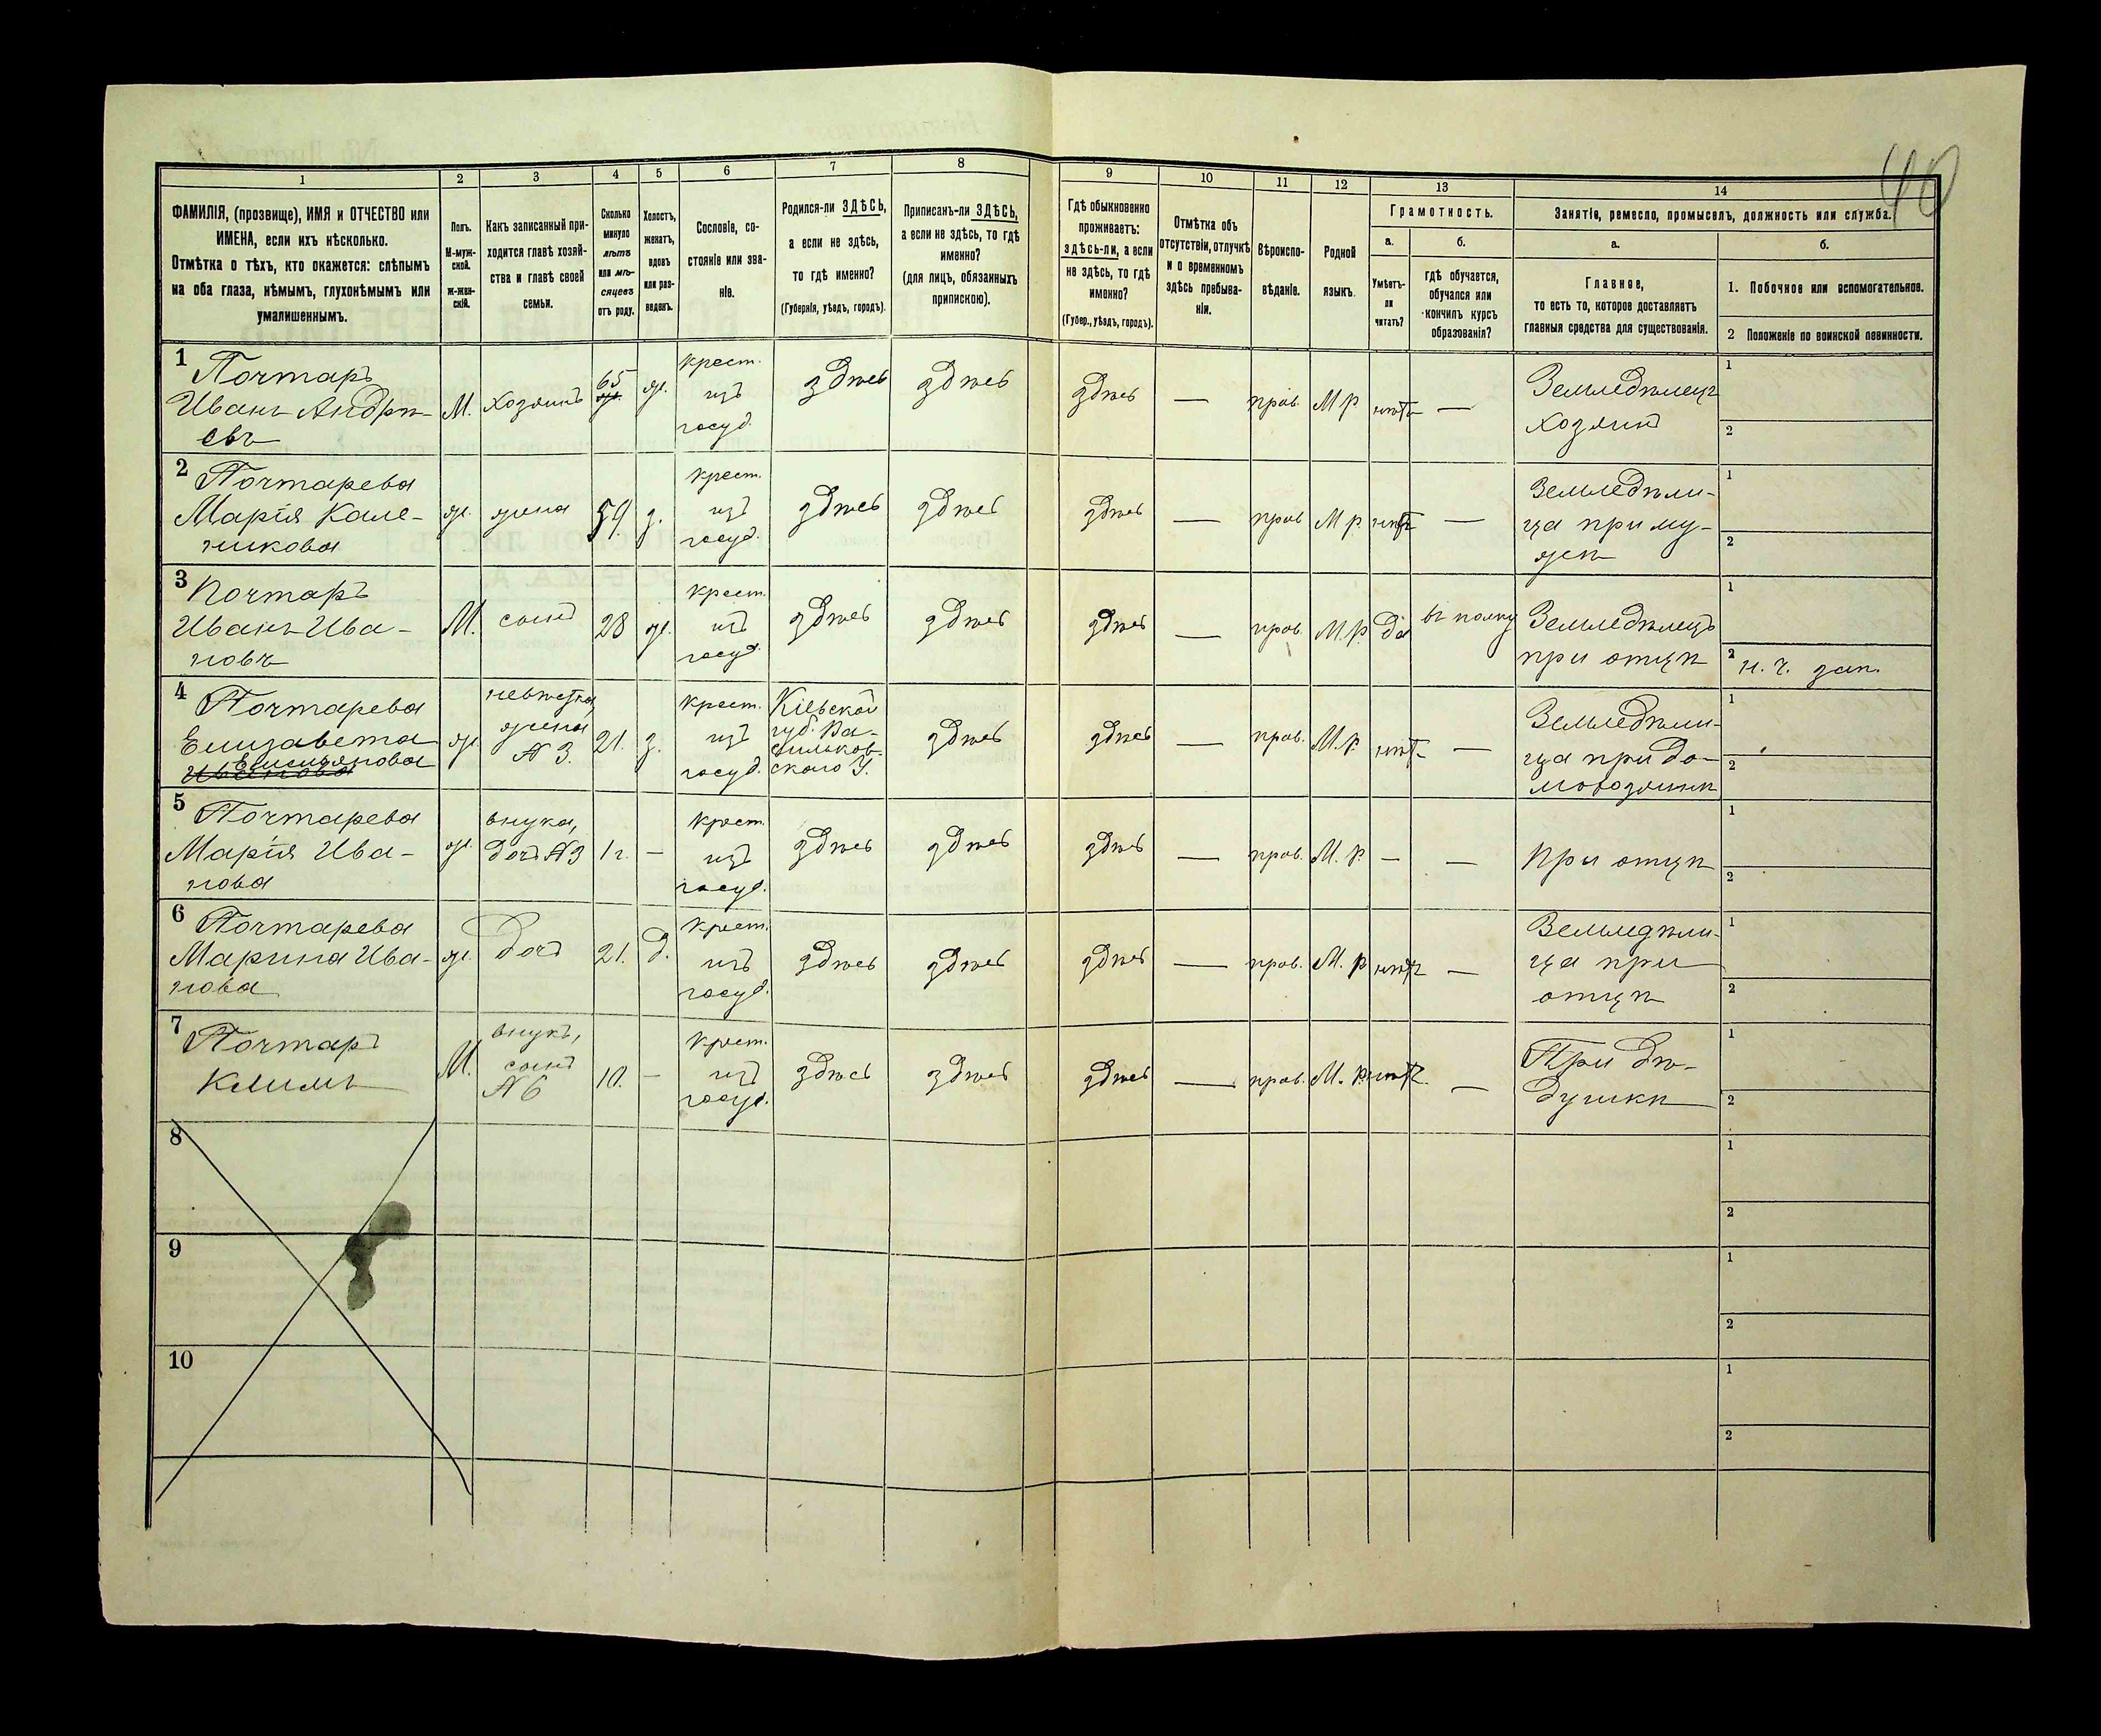 40
1
2
3
4
5
6
7
8
9
10
11
12
13
14
ФАМИЛІЯ, (прозвище), ИМЯ и ОТЧЕСТВО или
ИМЕНА, если ихъ нѣсколько.
Отмѣтка о тѣхъ, кто окажется: слѣпымъ
на оба глаза, нѣмымъ, глухонѣмымъ или
умалишеннымъ.
Полъ.
М-муж-
ской.
Ж-жен-
скій.
Какъ записанный при-
ходится главѣ хозяй-
ства и главѣ своей
семьи.
Сколько
минуло
лѣтъ
или мѣ-
сяцевъ
отъ роду.
Холостъ,
женатъ,
вдовъ
или раз-
веденъ.
Сословіе, со-
стояніе или зва-
ніе.
Родился-ли ЗДѢСЬ,
а если не здѣсь,
то гдѣ именно?
(Губернія, уѣздъ, городъ).
Приписанъ-ли ЗДѢСЬ,
а если не здѣсь, то гдѣ
именно?
(для лицъ, обязанныхъ
припискою).
Гдѣ обыкновенно
проживаетъ:
здѣсь-ли, а если
не здѣсь, то гдѣ
именно?
(Губер., уѣздъ, городъ).
Отмѣтка объ
отсутствіи, отлучкѣ
и о временномъ
здѣсь пребыва-
ніи.
Вѣроиспо-
вѣданіе.
Родной
языкъ.
Грамотность.
а.
Умѣетъ-
ли
читать?
б.
гдѣ обучается,
обучался или
кончилъ курсъ
образованія?
Занятіе, ремесло, промыселъ, должность или служба.
а.
Главное,
то есть то, которое доставляетъ
главныя средства для существованія.
б.
1. Побочное или вспомогательное.
2 Положеніе по воинской повинности.
1
Почтарь
Иванъ Андрѣ-
евъ
М.
хозяинъ
65
ж.
крест.
изъ
госуд.
здѣсь
здѣсь
здѣсь
—
прав.
М р
нѣтъ
—
Земледѣлецъ
хозяинъ
1
2
2
Почтарева
Марія Кале-
никова
ж.
жена
59
з.
крест.
изъ
госуд.
здѣсь
здѣсь
здѣсь
—
прав
М р.
нѣтъ
—
Земледѣли-
ца при му-
жѣ
1
2
3
Почтарь
Иванъ Ива-
новъ
М.
сынъ
28
ж.
крест.
изъ
госуд.
здѣсь
здѣсь
здѣсь
—
прав.
М.р.
да
въ полку
Земледѣлецъ
при отцѣ
1
2 н. ч. зап.
4
Почтарева
Елизавета
Елисеянова
ж.
невѣстка,
жена
№ 3.
21.
з.
крест.
изъ
госуд.
Кіевской
губ. Ва-
сильков-
скаго У.
здѣсь
здѣсь
—
прав.
М.р.
нѣтъ
—
Земледѣли-
ца при до-
мохозяинѣ
1
2
5
Почтарева
Марія Ива-
нова
ж.
внука,
дочь №3
1 г.
—
крест.
изъ
госуд.
здѣсь
здѣсь
здѣсь
—
прав.
М. р.
—
—
при отцѣ
1
2
6
Почтарева
Марина Ива-
нова
ж.
дочь
21.
д.
крест.
изъ
госуд.
здѣсь
здѣсь
здѣсь
—
прав.
М. р
нѣтъ
—
Земледѣли-
ца при
отцѣ
1
2
7
Почтарь
Климъ
М.
внукъ,
сынъ
№ 6
10.
—
крест.
изъ
госуд.
здѣсь
здѣсь
здѣсь
—
прав.
М. р.
нѣтъ
—
При дѣ-
душкѣ
1
2
8
1
2
9
1
2
10
1
2